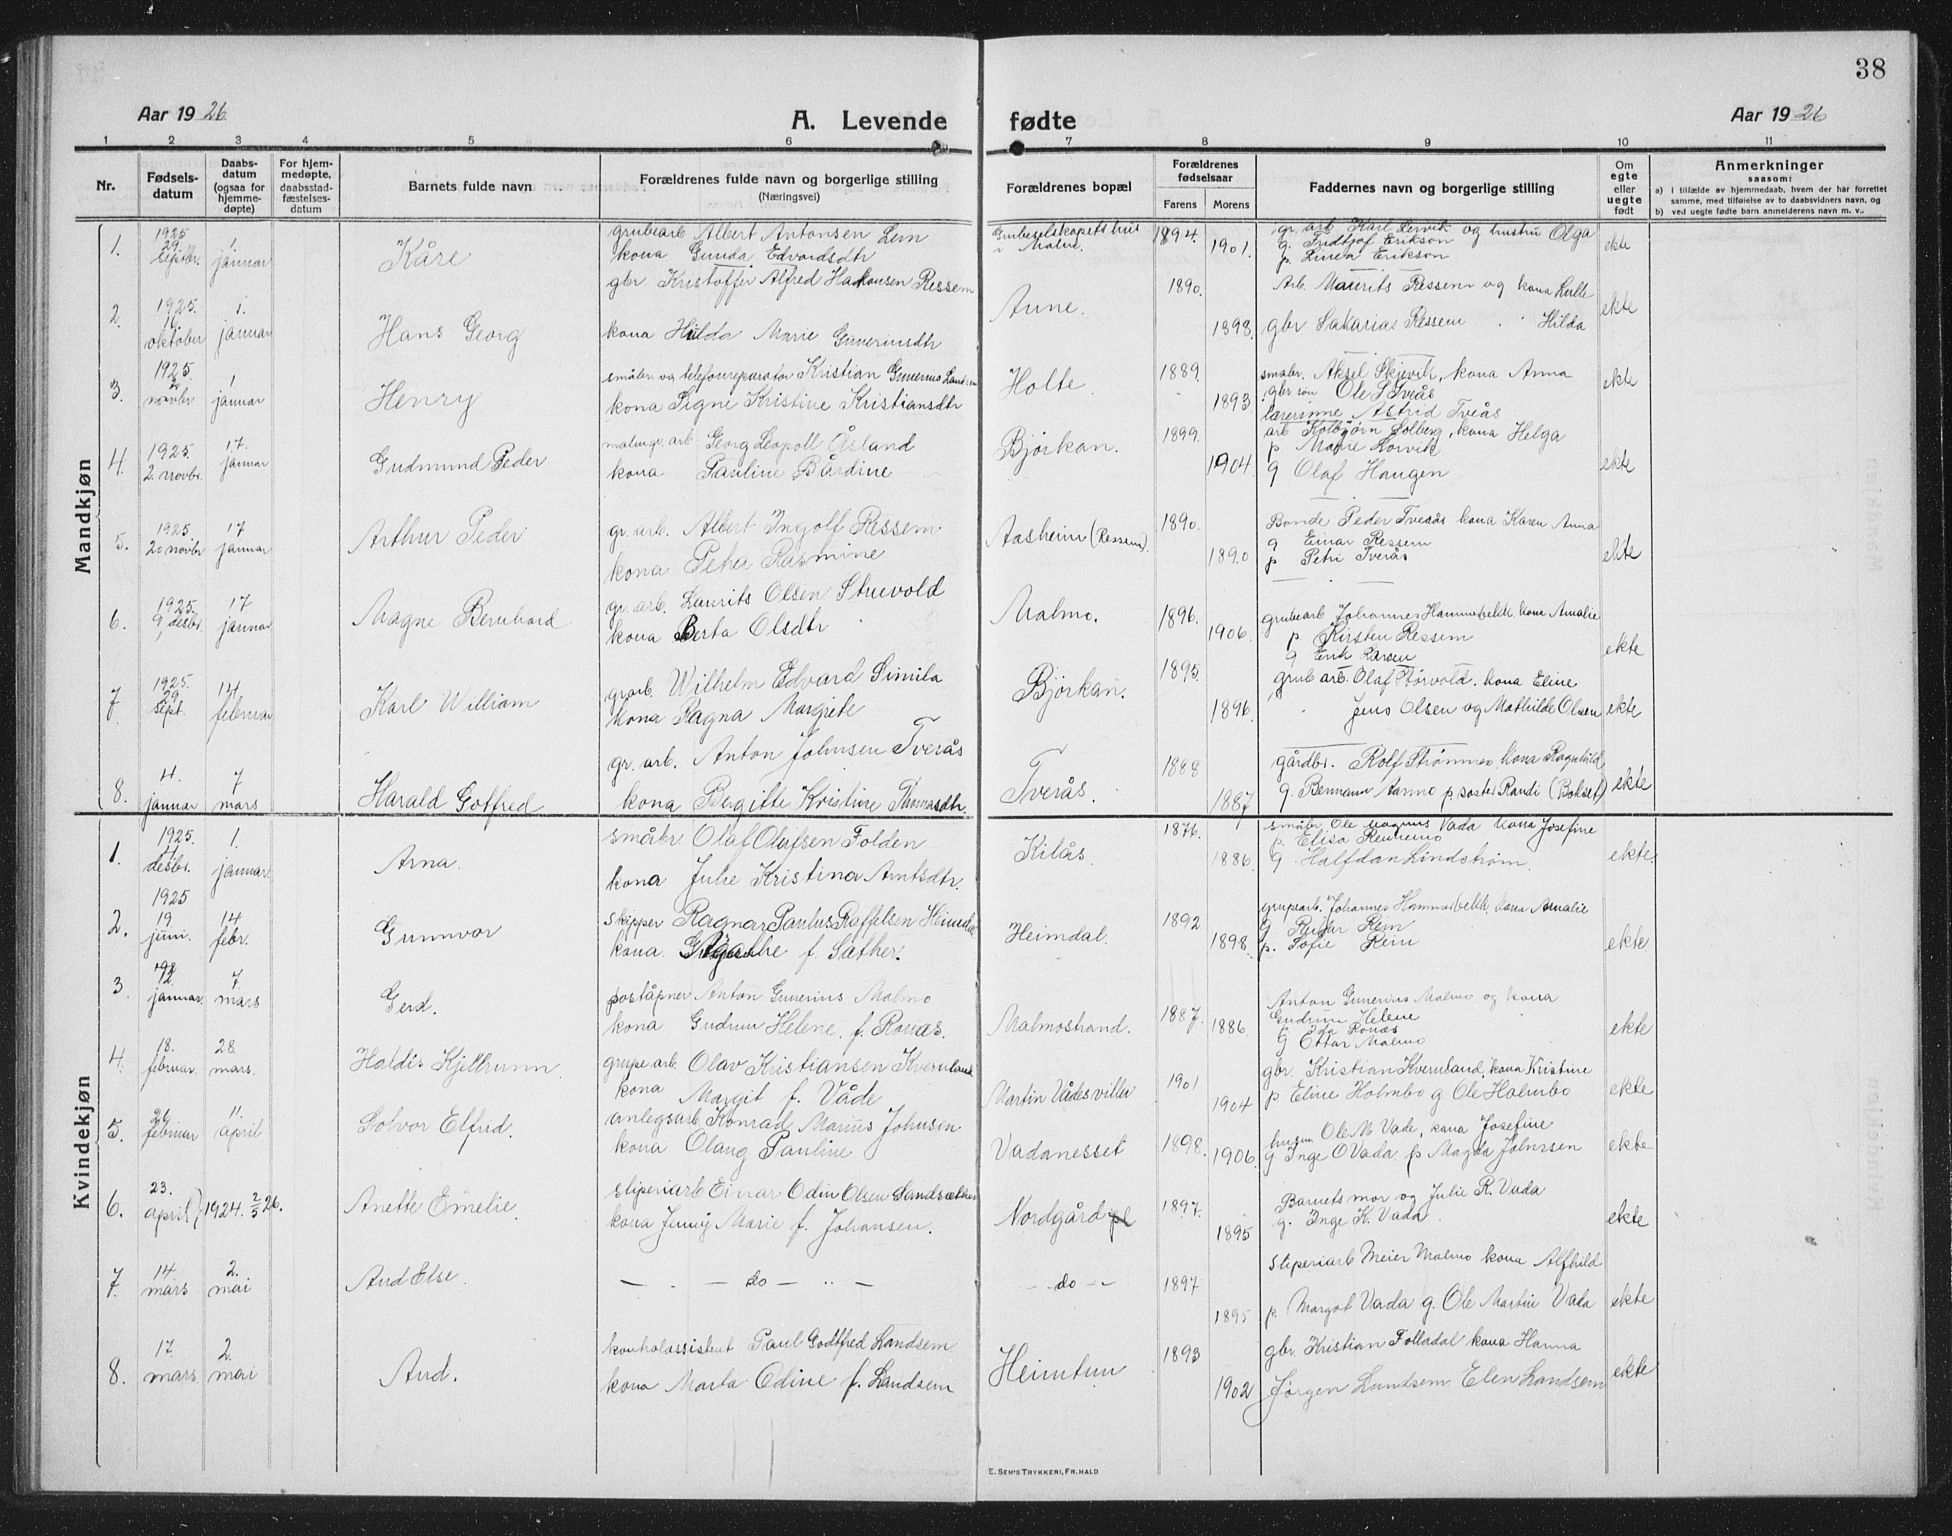 38
Aar 1926
A. Levende fødte
Aar 1926
1 2 3 4 5 6 7 8 9 10 11
Nr.
Fødsels-
datum
Daabs-
datum
(ogsaa for
hjemme-
døpte)
For hjem-
medøpte,
daabsstad-
fæstelses-
datum
Barnets fulde navn
Forældrenes fulde navn og borgerlige stilling
(Næringsvei)
Forældrenes bopæl
Forældrenes
fødselsaar
Farens Morens
Faddernes navn og borgerlige stilling
Om
egte
eller
uegte
født
Anmerkninger
saasom:
a) i tilfælde av hjemmedaab, hvem der har forrettet
samme, med tilføielse av to daabsvidners navn, og
b) ved uegte fødte barn anmelderens navn m. v..
Mandkjøn
1. 1925 29. septbr. 1. januar Kåre
grubearb Albert Antonsen Lem
kona Gunda Edvardsdtr
Grubeselskapets hus i Malm. 1894. 1901.
gr. arb Karl Lervik og hustru Olga
g. Fridtjof Erikson
p. Linea Erikson
ekte
2. 1925. oktober 1. januar Hans Georg
gbr Kristoffer Alfred Hakonsen Ressem
kona Hilda Marie Gunerinsdtr
Aune. 1890. 1898.
Arb. Maurits Ressem og kona Lulle
gbr Sakarias Ressem Hilda
ekte
3. 1925. 2 novbr 1 januar Henry
småbr og telefonreparatør Kristian Gunerius
kona Signe Kristine Kristiansdtr
Holte. 1889. 1893
småbr. Aksel Skjevik, kona Anna
gbr søn Ole S Tveås
lærerinne Astrid Tveås
ekte
4. 1925 2. novbr. 17. januar Gudmund Peder
arb Georg Leopolt Åsland
kona Pauline Bårdine
Bjørkan. 1899. 1904
arb Kolbjørn Solberg, kona Helga
p Marie Lorvik
g Olaf Haugen
ekte
5. 1925. 20 novbr 17 januar Arthur Peder
gr. arb. Albert Ingolf Ressem
kona Petra Rasmine
Aasheim (Ressem). 1890. 1890
Bonde Peder Tverås kona Karen Anna
g Einar Ressem
p Petri Tverås
ekte
6. 1925. 9, desbr. 17 januar Magne Bernhard
gr. arb. Laurits Olsen Struvold
kona Berta Olsdtr
Malmo. 1896. 1906.
grubearb Johannes kona Amalie
p Kirsten Ressem
g Erik Larsen
ekte
7 1925. 29 sept. 14 februar Karl William
grarb. Wilhelm Edvard Simila
kona Ragna Margrete
Bjørkan. 1895. 1896.
grub arb. Olaf Størvold. kona Eline
Jens Olsen og Mathilde Olsen
ekte
8. 4. januar 7 mars Harald Gotfred
gr. arb. Anton Johnsen Tverås
kona Bergitte Kristine Thomasdtr.
Tverås. 1888 1887
gårdbr. Rolf Strømmes kona Ragnhild
g. Bermann Aanmo p. søster Randi (Bokset)
ekte
Kvindekjøn
1. 1925. desbr. 1. januar Arna.
småbr. Olaf Olufsen Folden
kona Julie Kristina Arntsdtr.
Kilås. 1876. 1886
småbr. Ole Magnus Vada kona Josefine
p. Elisa Rennemo
g. Halfdan Lindstrøm.
ekte
2. 1925 19 juni. 14 febr. Gunnvor
skipper Ragnar Paulus Raffelsen Heimdal
kona f. Sæther.
Heimdal. 1892 1898
Johannes kona Amalie
g. Rein
p. Sofie Rein
ekte
3 12. januar. 7. mars Gerd.
poståpner Anton Gunerius Malmo
kona Gudrun Helene. f. Ronæs.
Malmostrand. 1887. 1886.
Anton Gunerius Malmo og kona
Gudrun Helene
Ida Ronæs
g Ottar Malmo
ekte
4. 18. februar. 28. mars. Haldis Kjellrunn.
grupe arb. Olav Kristiansen Kvernland
kona Margit f. Våde
Martin Vådesviller 1901 1904
gbr. Kristian Kvernland, kona Kristine
p Eline Holmbo g Ole Holmbo
ekte
5. 26 februar 11. april Solvor Elfrid.
anlegsarb. Konrad Marius Johnsen
kona Olaug Pauline
Vadanesset 1898. 1906.
husm Ole M. Vade, kona Josefine
g Inge O Vada p Magda Johnssen
ekte
6. 23. april} 1924. 2/5 26. Anette Emelie.
sliperiarb Einar Odin Olsen Landsæther
kona Jenny Marie f. Johansen.
Nordgård pl 1897. 1895
Barnets mor og Julie R. Vada
g. Inge K. Vada.
ekte
7. 14 mars 2. mai Aud Else.
do
do 1897 1895
sliperiarb Meier Malmo kona Alfhild
p. Margot Vada g. Ole Martin Vada
ekte
8. 17. mars. 2. mai Aud.
kontorassistent Paul Godtfred Landsem
kona Marta Odine f. Landsem
Heimtun 1893 1902
gbr. Kristian Folladal kona Hanna
Jørgen Landsem Elen Landsem
ekte
E. SEM'S TRYKKERI, FR.HALD